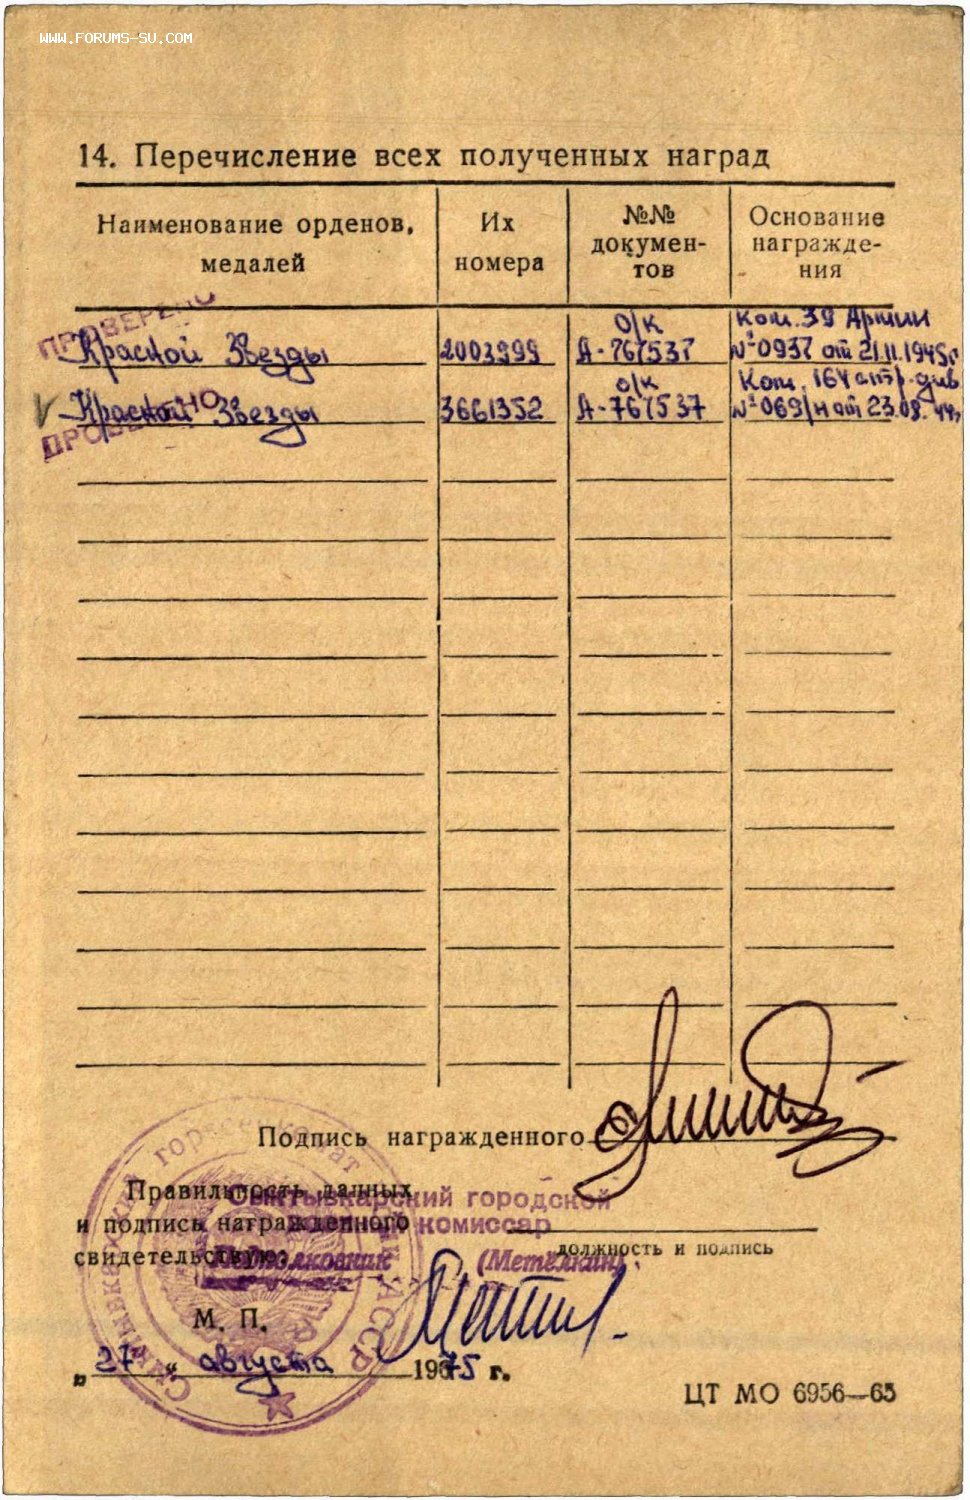 WWW.FORUMS-SU.COM
14. Перечисление всех полученных наград
Наименование орденов, медалей
Их номера
№№ докумен-тов
Основание награжде-ния
ПРОВЕРЕНО
Красной Звезды
2003999
о/к А-767537
Ком. 39 Армии
№0937 от 21.11.1945г
V Красной Звезды
3661352
о/к А-767537
Ком. 164 стр. див
№069/н от 23.08.44г
ПРОВЕРЕНО
Подпись награжденного
Правильность данных
и подпись награжденного
свидетельствую:
Сыктывкарский городской
военный комиссар
Подполковник (Метёлкин)
должность и подпись
М. П.
„27“ августа 1975 г.
ЦТ МО 6956—65